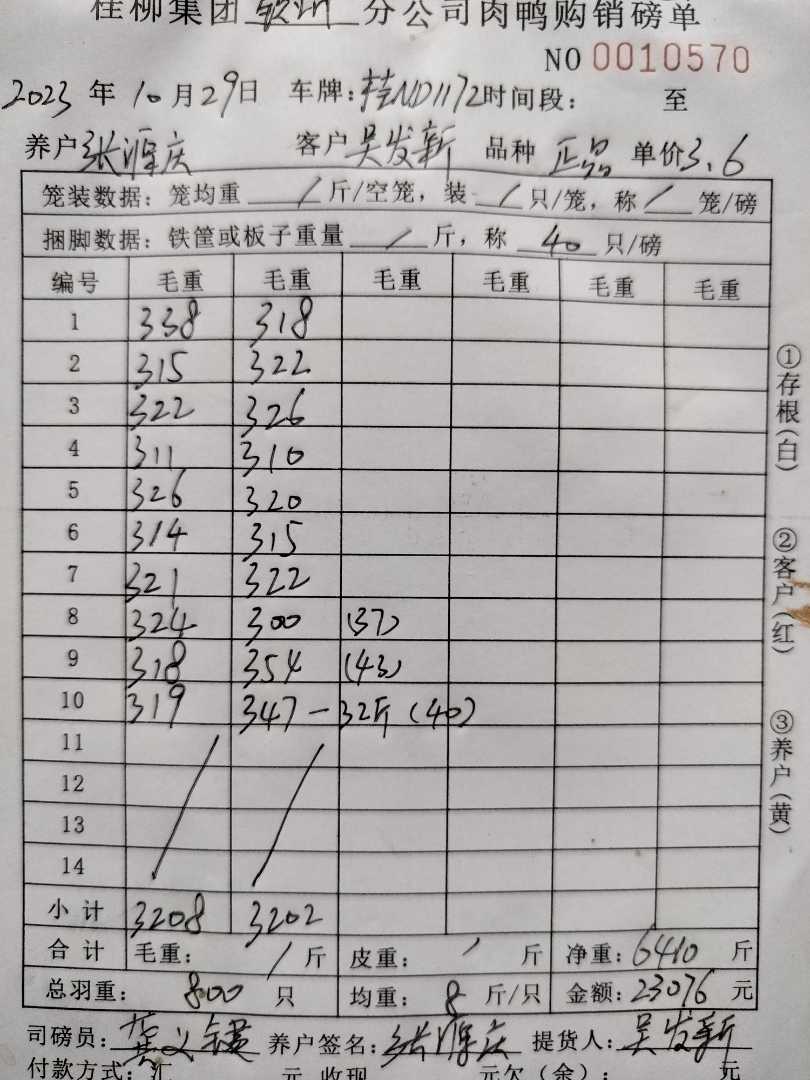 桂柳集团钦州分公司肉鸭购销磅单
NO 0010570
2023 年 10 月 29 日 车牌: 桂ND1172 时间段: 至
养户 张渥庆 客户 吴发新 品种 正品 单价 3.6
笼装数据: 笼均重 / 斤/空笼, 装 / 只/笼, 称 / 笼/磅
捆脚数据: 铁筐或板子重量 / 斤, 称 40 只/磅
编号 毛重 毛重 毛重 毛重 毛重 毛重
1 338 318
2 315 322
3 322 326
4 311 310
5 326 320
6 314 315
7 321 322
8 324 300 (37)
9 318 354 (43)
10 319 347-32斤 (40)
11
12
13
14
小计 3208 3202
合计 毛重: / 斤 皮重: / 斤 净重: 6410 斤
总羽重: 800 只 均重: 8 斤/只 金额: 23076 元
司磅员: 养户签名: 张渥庆 提货人: 吴发新
付款方式: 汇 元 收现 元欠(余): 元
①存根(白)
②客户(红)
③养户(黄)